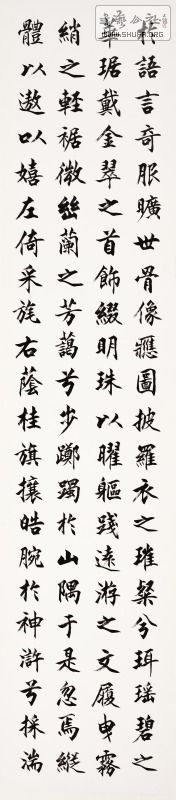 於語言奇服曠世骨像應圖披羅衣之璀粲兮珥瑤碧之
華琚戴金翠之首飾綴明珠以曜軀踐遠游之文履曳霧
綃之輕裾微幽蘭之芳藹兮步躑躅於山隅于是忽焉縱
體以遨以嬉左倚采旄右蔭桂旗攘皓腕於神滸兮採湍